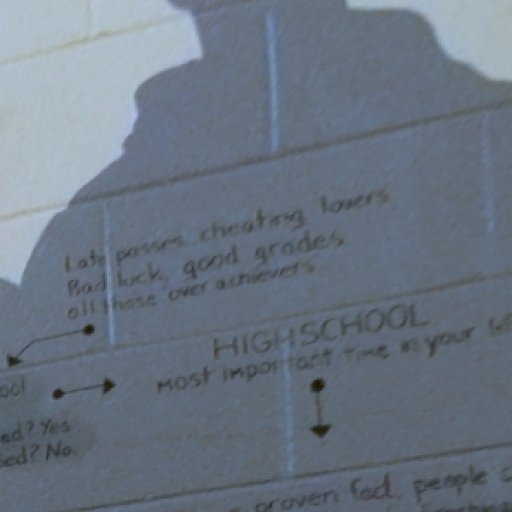 Late passes, cheating lovers
Bad luck, good grades,
all those over achievers
HIGHSCHOOL
most important time in your
ool
ed? Yes
sed? No.
proven fact, people